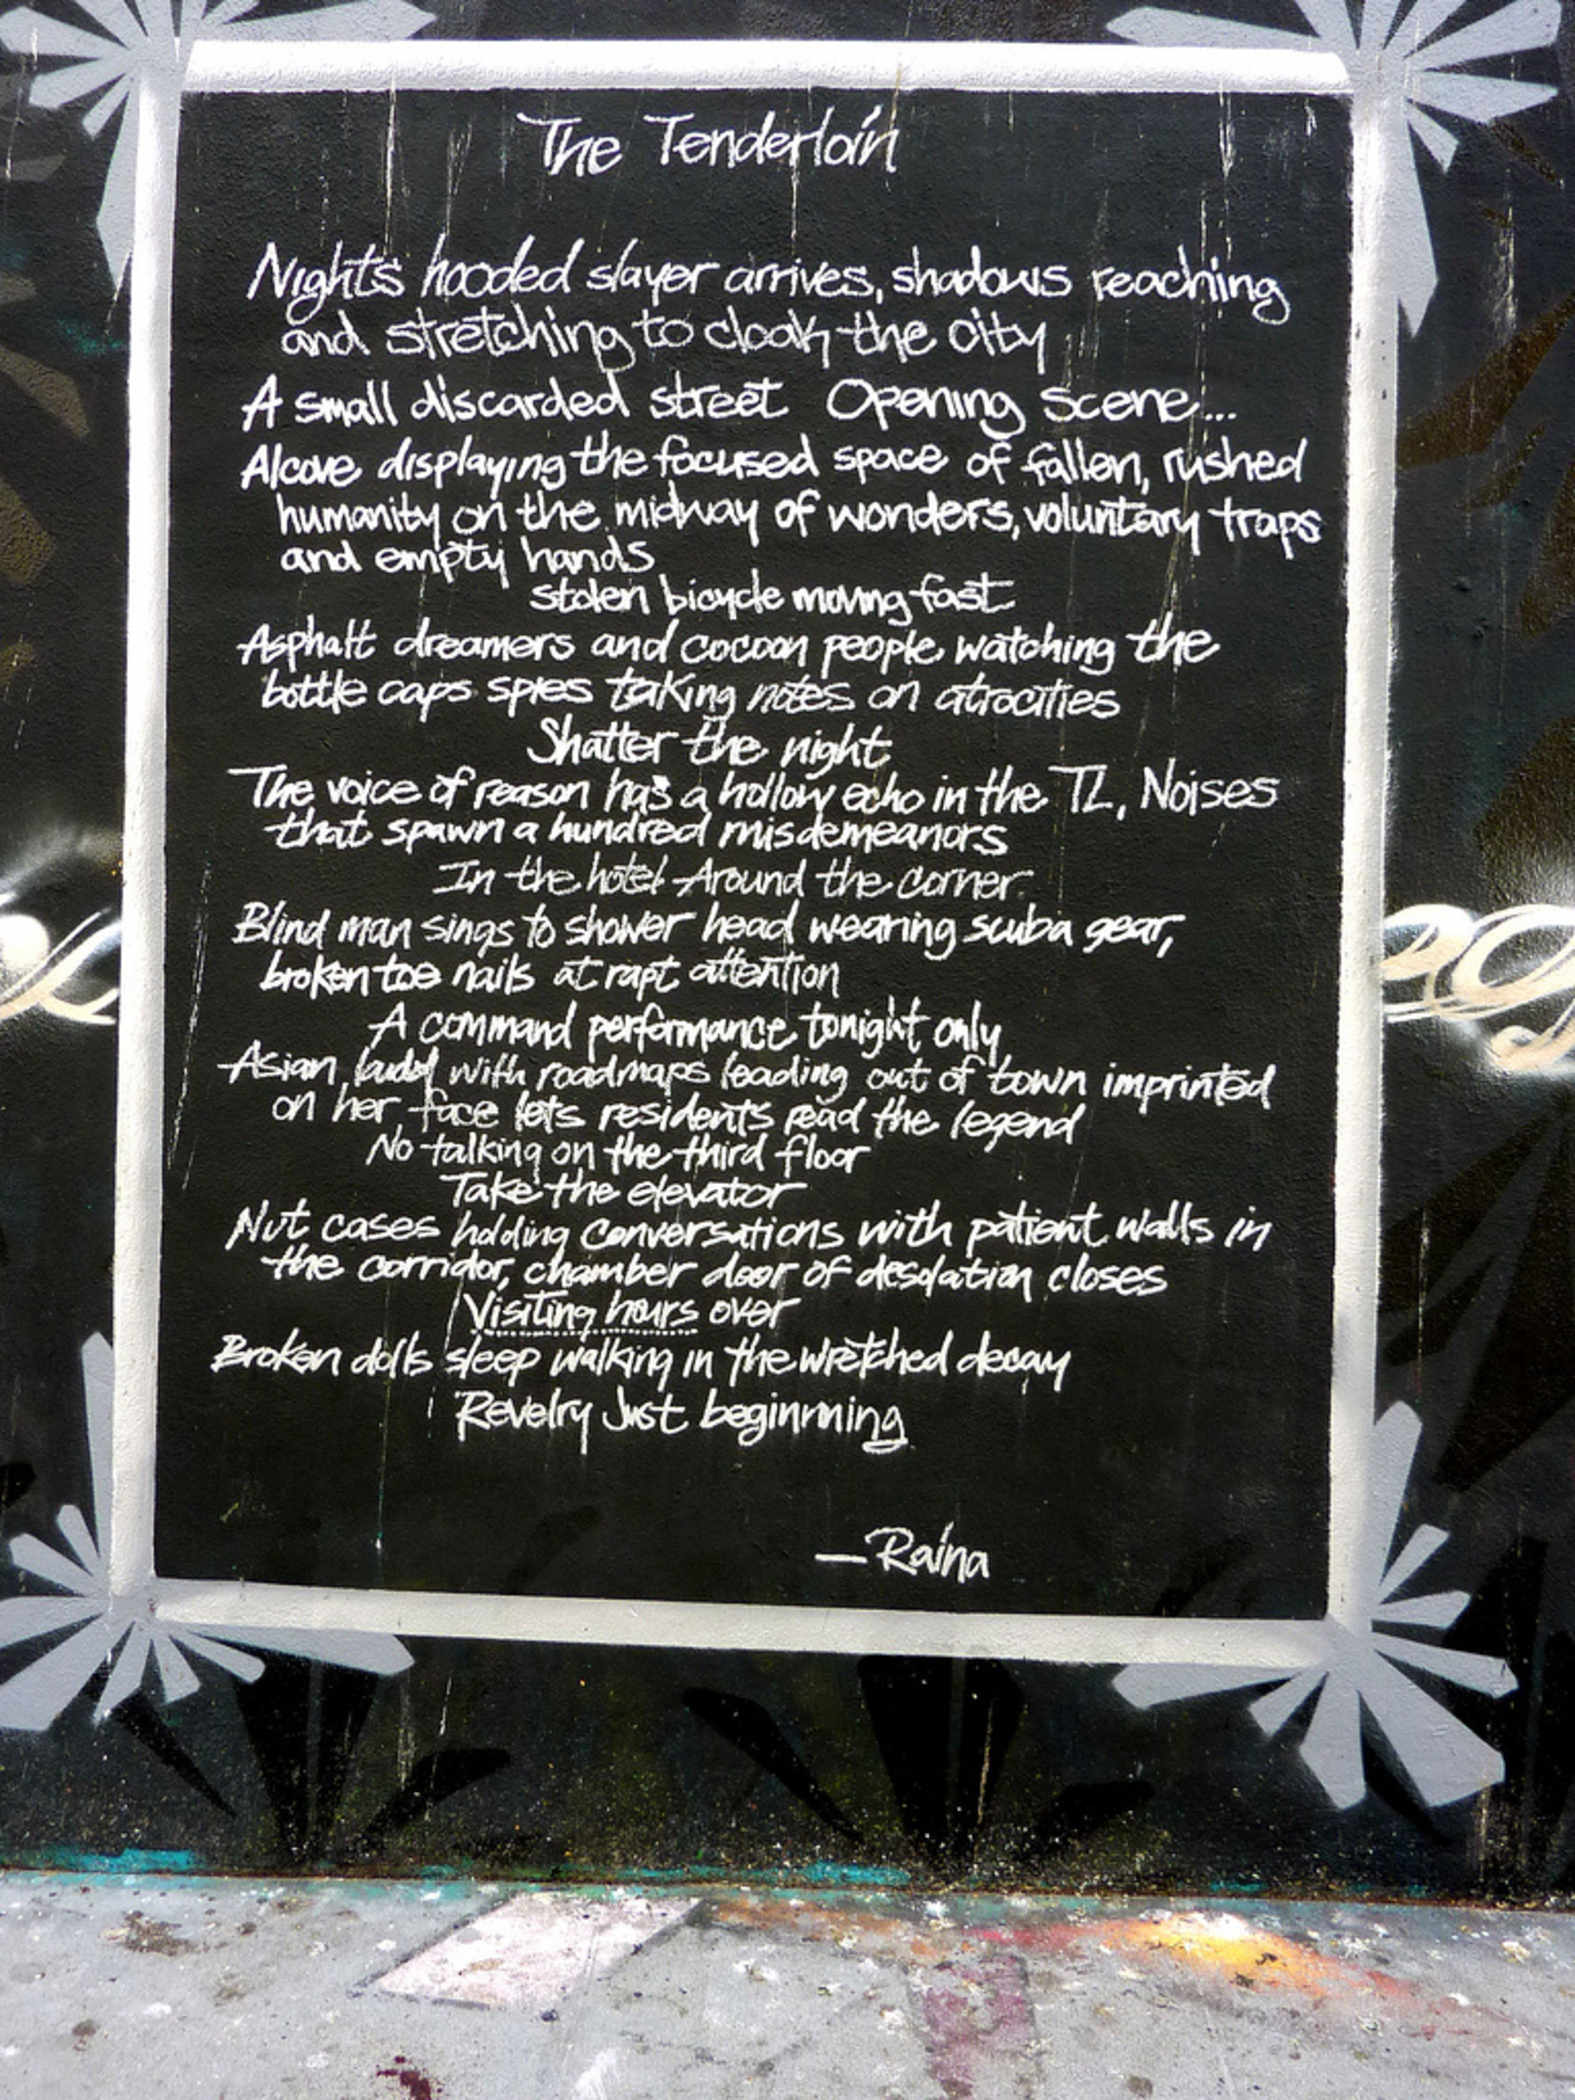 The Tenderloin
Nights hooded slayer arrives, shadows reaching
and stretching to cloak the city
A small discarded street Opening Scene...
Alcove displaying the focused space of fallen, rushed
humanity on the midway of wonders, voluntary traps
and empty hands
stolen bicycle moving fast
Asphalt dreamers and cocoon people watching the
bottle caps spies taking notes on atrocities
Shatter the night
The voice of reason has a hollow echo in the TL, Noises
that spawn a hundred misdemeanors
In the hotel Around the corner.
Blind man sings to shower head wearing scuba gear,
broken toe nails at rapt attention
A command performance tonight only
Asian with roadmaps leading out of town imprinted
on her face lets residents read the legend
No talking on the third floor
Take the elevator
Nut cases holding conversations with patient walls in
the corridor, chamber door of desolation closes
Visiting hours over
Broken dolls sleep walking in the wretched decay
Revelry Just beginnning
—Raina